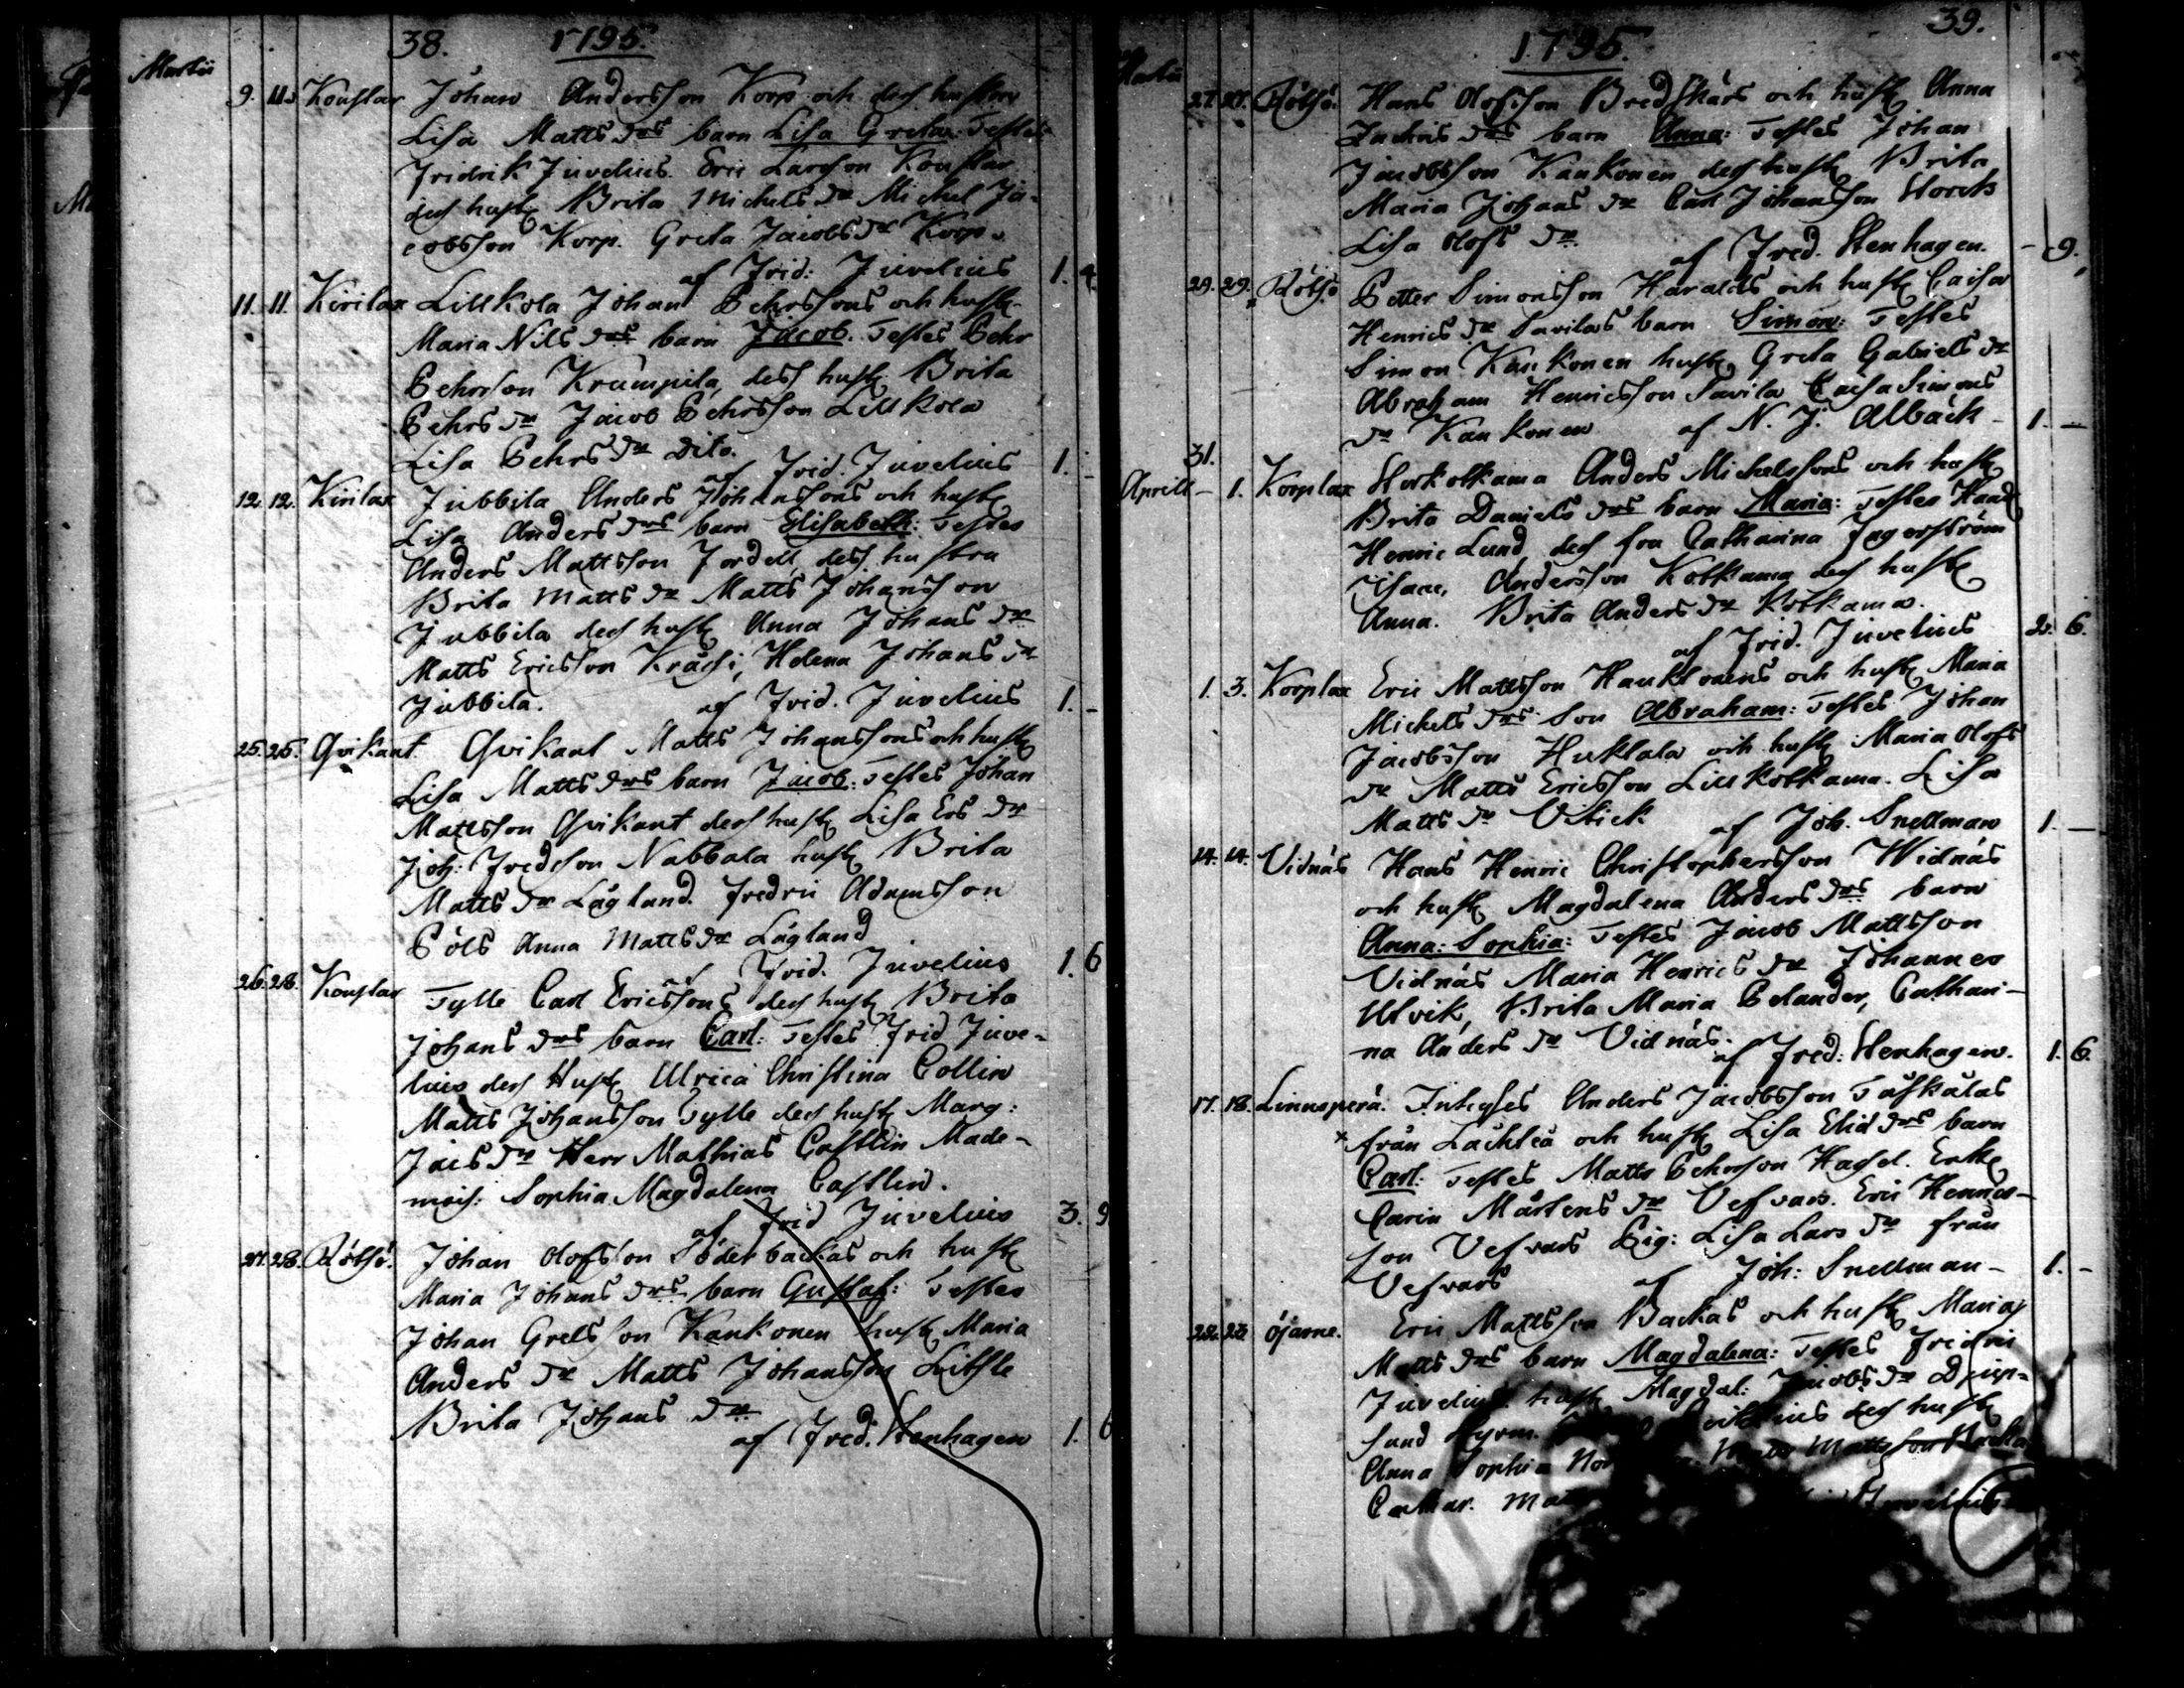 38. 1795.
Martii
9. 11. Kouflax Johan Andersson Korp och dess hustru
Lisa Matts drs barn Lisa Greta: Testes
Fridrik Juvelius. Eric Larsson Kouflax
dess hust Brita Michels dr Michel Ja-
cobsson Korp. Greta Jacobs dr Korp.
af Frid: Juvelius 1. 4.
11. 11. Kirilax Lillkola Johan Pehrssons och hust
Maria Nils drs barn Jacob. Testes Pehr
Pehrsson Krumpila, dess hust Brita
Pehrs dr Jacob Pehrsson Lillkola
Lisa Pehrs dr dito.
af Frid. Juvelius 1. -
12. 12. Kirilax Jubbila Anders Johanssons och hust
Lisa Anders drs barn Elisabeth: Testes
Anders Mattsson Jordell, dess hustru
Brita Matts dr Matts Johansson
Jubbila dess hust Anna Johans dr
Matts Ericsson Helena Johans dr
Jubbila. af Frid. Juvelius 1. -
25. 25. Qvikant Qvikant Matts Johanssons och hust
Lisa Matts drs barn Jacob: Testes Johan
Mattsson Qvikant dess hust Lisa Ers dr
Joh: Fredsson Nabbala hust Brita
Matts dr Lågland. Fredric Adamsson
Pöls Anna Matts dr Lågland
af Frid. Juvelius 1. 6
26. 28. Kouflax Tylle Carl Ericssons dess hust Brita
Johans drs barn Carl: Testes Frid Juve-
lius dess Hust Ulrica Christina Collin
Matts Johansson Tylle dess hust Marg:
Jacs dr Herr Mathias Castlin Made-
mois: Sophia Magdalena Castlin.
af Frid Juvelius 3. 9
27. 28. Rötsö. Johan Olofsson Söderbackas och hust
Maria Johans drs barn Gustaf: Testes
Johan Grelsson Kankonen hust Maria
Anders dr Matts Johansson
Brita Johans dr
af Fred. Stenhagen 1. 6
1795. 39.
Martii
27. 27. Rötsö. Hans Olofsson Bredskärs och hust Anna
Zachris drs barn Anna: Testes Johan
Jacobsson Kankonen dess hust Brita
Maria Johans dr Carl Johansson Storch
Lisa Olofs dr
af Fred. Stenhagen. - 9.
29. 29. Rötsö Petter Simonsson Haralds och hust Caisa
Henrics dr Savilas barn Simon: Testes
Simon Kankonen hust Greta Gabriels dr
Abraham Henricsson Savila Caisa Simons
dr Kankonen af N. J. Albäck - 1. -
31.
Aprill - 1. Korplax Storkotkama Anders Michelssons och hust
Brita Daniels drs barn Maria: Testes Hand
Henric Lund, dess fru Catharina Jagerström
Isaac Andersson Kotkama dess hust
Anna. Brita Anders dr Kotkama.
af Frid. Juvelius 2. 6.
1. 3. Korplax Eric Mattsson och hust Maria
Michels drs Son Abraham: Testes Johan
Jacobsson Huklala och hust Maria Olofs
dr Matts Ericsson Lillkotkama. Lisa
Matts dr
af Joh. Snellman 1. -
14. 14. Vidnäs Hans Henric Christophersson Widnäs
och hust Magdalena Anders drs barn
Anna: Sophia: Testes Jacob Mattsson
Vidnäs Maria Henrics dr Johannes
Ulvik, Brita Maria Pelander, Cathari-
na Anders dr Vidnäs.
af Fred: Stenhagen. 1. 6.
17. 18. Linnuperä. Inhyses Anders Jacobsson Taskulas
från Lachteå och hust Lisa Elid drs barn
Carl: Testes Matts Pehrsson Hagel. Enke
Carin Mårtens dr Vefvars. Eric Henrics-
son Vefvars Pig: Lisa Lars dr från
Vefvars af Joh: Snellman - 1. -
22. 23. Öjarne. Eric Mattsson Backas och hust Maria
Matts drs barn Magdalena: Testes Fridric
Juvelius hust Magdal: Jacobs dr Djup-
sund dess hust
Anna Sophia Matts Mattsson
Cathar.